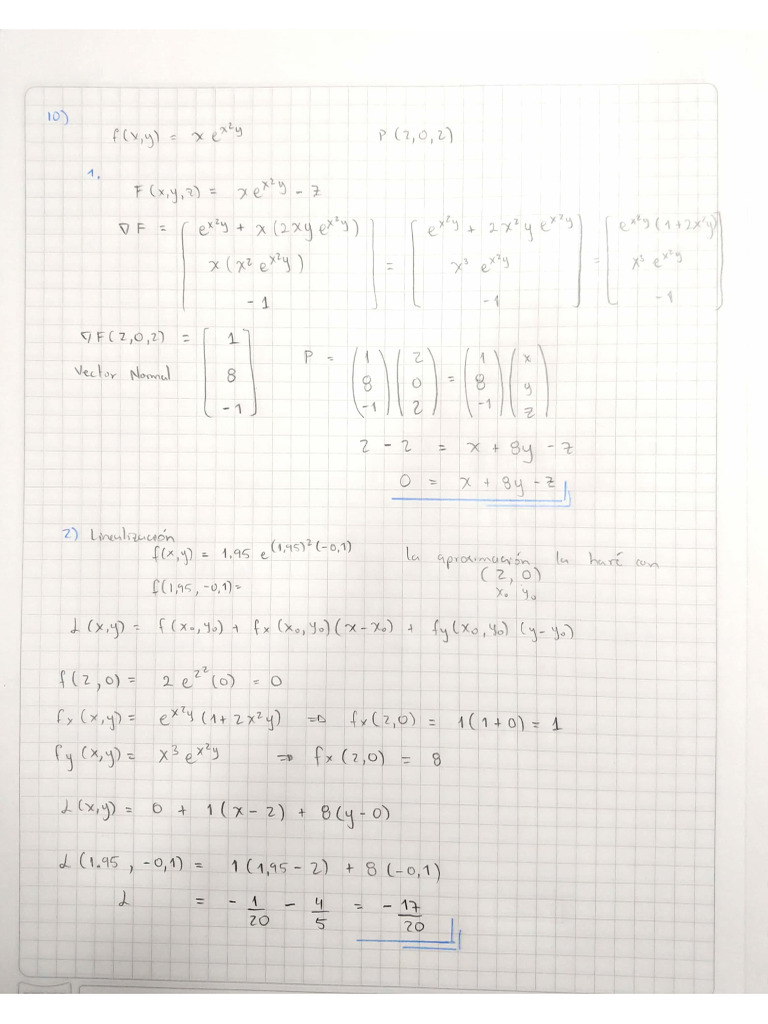 10)
f(x,y) = x e^{x²y}    P(2,0,2)
1.
F(x,y,z) = xe^{x²y} - z
∇F = [ e^{x²y} + x(2xy e^{x²y}) ; x(x² e^{x²y}) ; -1 ] = [ e^{x²y} + 2x²y e^{x²y} ; x³ e^{x²y} ; -1 ] = [ e^{x²y}(1+2x²y) ; x³ e^{x²y} ; -1 ]
∇F(2,0,2) = [ 1 ; 8 ; -1 ]    P = ( 1 ; 8 ; -1 ) ( 2 ; 0 ; 2 ) = ( 1 ; 8 ; -1 ) ( x ; y ; z )
Vector Normal
2 - 2 = x + 8y - z
0 = x + 8y - z
2) Linealización
f(x,y) = 1,95 e^{(1,95)²(-0,1)}    la aproximación la haré con
(2,0)
f(1,95, -0,1) =    x₀ y₀
L(x,y) = f(x₀,y₀) + fx(x₀,y₀)(x-x₀) + fy(x₀,y₀)(y-y₀)
f(2,0) = 2e^{2²}(0) = 0
fx(x,y) = e^{x²y}(1+2x²y) ⇒ fx(2,0) = 1(1+0) = 1
fy(x,y) = x³e^{x²y} ⇒ fx(2,0) = 8
L(x,y) = 0 + 1(x-2) + 8(y-0)
L(1.95, -0,1) = 1(1,95-2) + 8(-0,1)
L = - 1/20 - 4/5 = - 17/20